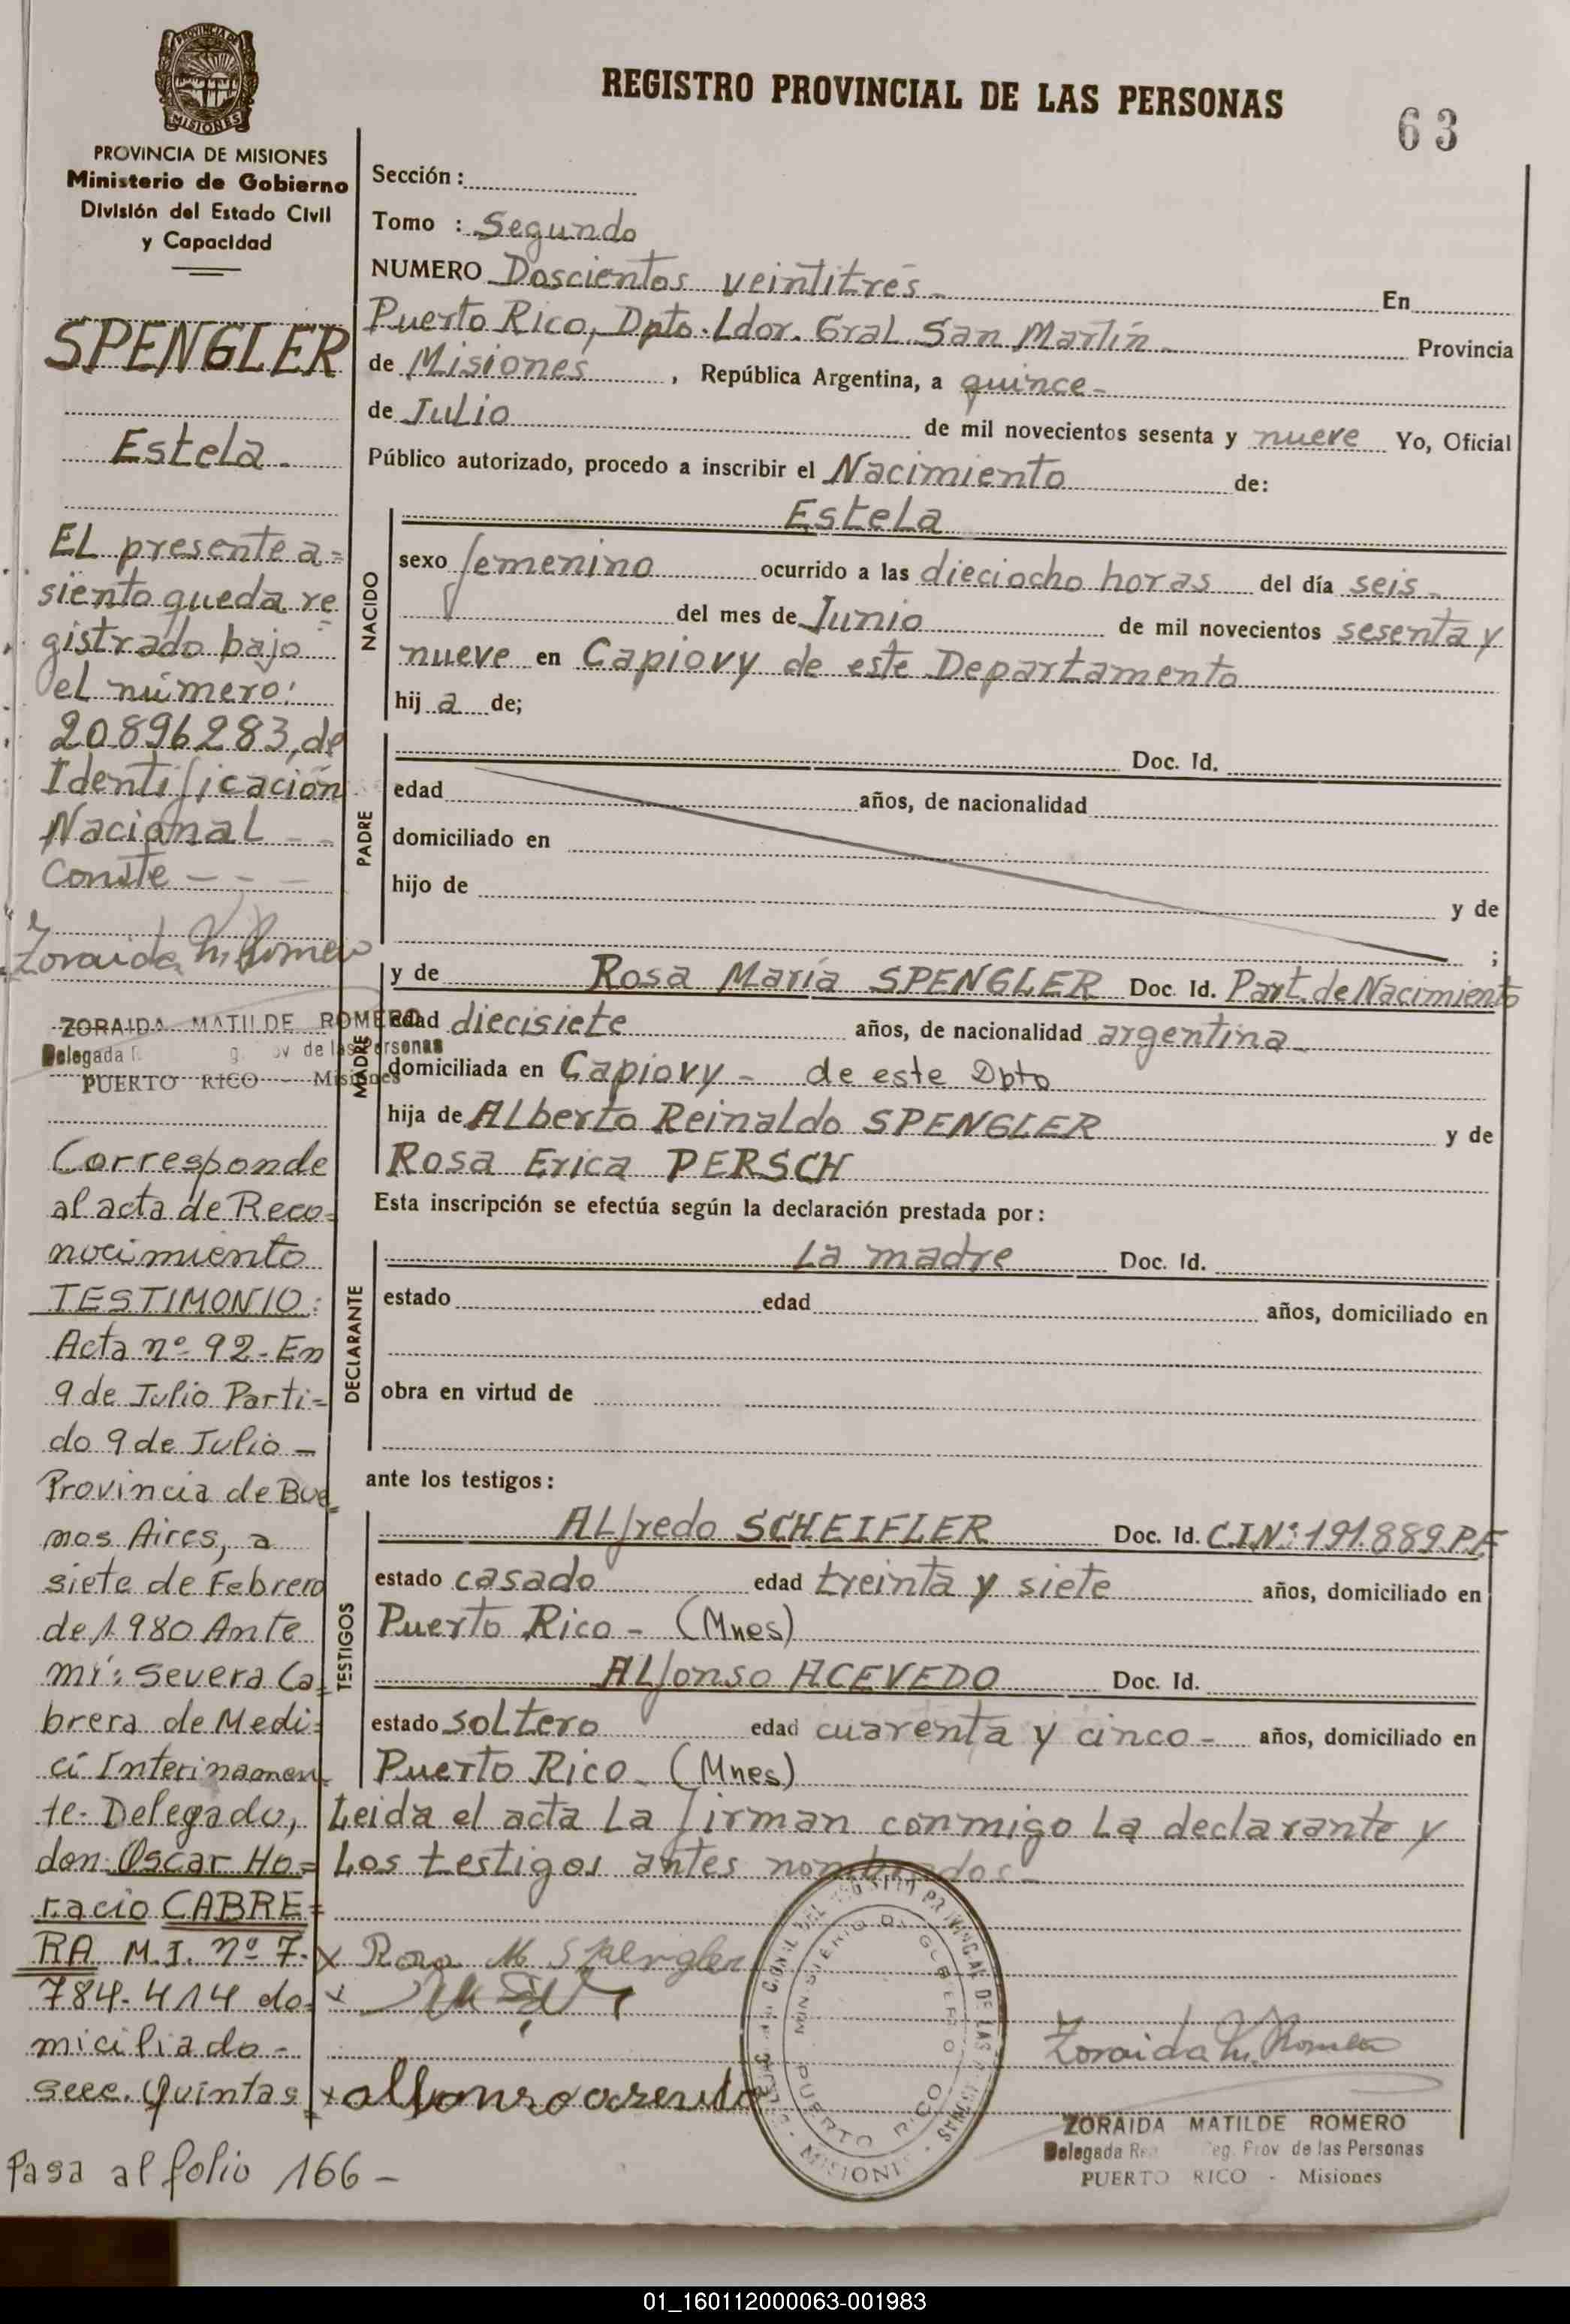 PROVINCIA DE MISIONES
Ministerio de Gobierno
División del Estado Civil
y Capacidad
REGISTRO PROVINCIAL DE LAS PERSONAS
63
SPENGLER
Estela.
El presente a=
siento queda re
gistrado bajo
el número:
20896283, de
Identificación
Nacional - -
Conste - - -
Zoraida M. Romero
ZORAIDA MATILDE ROMERO
Delegada
PUERTO RICO - Misiones
Corresponde
al acta de Reco=
nocimiento
TESTIMONIO:
Acta nº 92- En
9 de Julio Parti-
do 9 de Julio -
Provincia de Bue
nos Aires, a
siete de Febrero
de 1980 Ante
mí: Severa Ca
brera de Medi=
ci Interinamen
te- Delegado,
don Oscar Ho=
racio CABRE=
RA M.I. nº 7.
784.414 do=
miciliado -
secc. Quintas
Pasa al folio 166 -
Sección:
Tomo : Segundo
NUMERO Doscientos veintitrés - En
Puerto Rico, Dpto. Ldor. Gral. San Martín - Provincia
de Misiones, República Argentina, a quince -
de Julio de mil novecientos sesenta y nueve Yo, Oficial
Público autorizado, procedo a inscribir el Nacimiento de:
NACIDO
Estela
sexo femenino ocurrido a las dieciocho horas del día seis -
del mes de Junio de mil novecientos sesenta y
nueve en Capiovy de este Departamento
hij a de;
PADRE
Doc. Id.
edad años, de nacionalidad
domiciliado en
hijo de y de
;
MADRE
y de Rosa María SPENGLER Doc. Id. Part. de Nacimiento
edad diecisiete años, de nacionalidad argentina -
domiciliada en Capiovy - de este Dpto
hija de Alberto Reinaldo SPENGLER y de
Rosa Erica PERSCH
Esta inscripción se efectúa según la declaración prestada por:
DECLARANTE
La madre Doc. Id.
estado edad años, domiciliado en
obra en virtud de
ante los testigos:
TESTIGOS
Alfredo SCHEIFLER Doc. Id. C.I.Nº: 191.889 P.F
estado casado edad treinta y siete años, domiciliado en
Puerto Rico - (Mnes)
Alfonso ACEVEDO Doc. Id.
estado soltero edad cuarenta y cinco - años, domiciliado en
Puerto Rico - (Mnes)
Leida el acta la firman conmigo la declarante y
los testigos antes nombrados -
x Rosa M Spengler
x
x alfonso acevedo
MINISTERIO DE GOBIERNO
PUERTO RICO
MISIONES
Zoraida M. Romero
ZORAIDA MATILDE ROMERO
Delegada Reg. Prov de las Personas
PUERTO RICO - Misiones
01_160112000063-001983